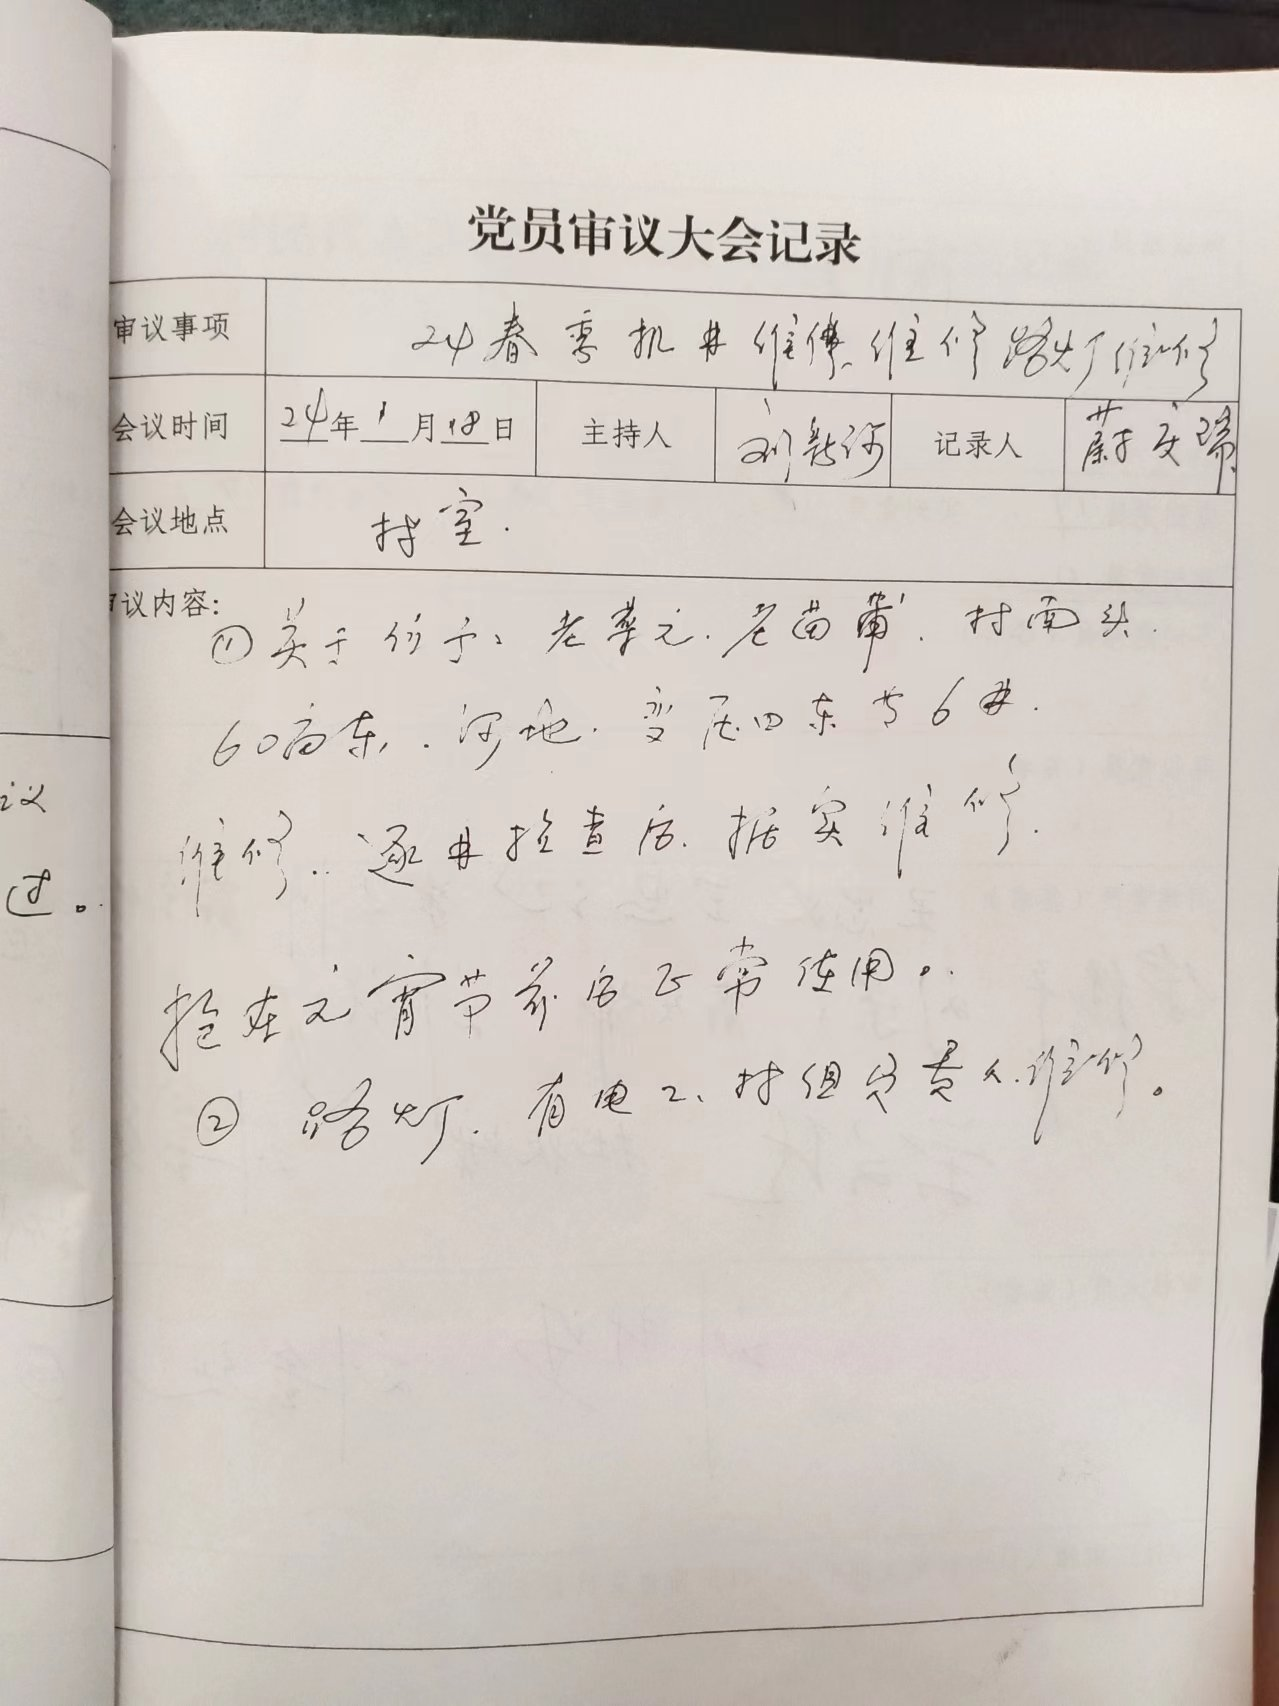 党员审议大会记录
审议事项 24春季机井维修、维修路灯维修
会议时间 24年1月18日 主持人 刘 记录人 蔚文瑞
会议地点 村室.
审议内容:
①关于 老菜元.老苗莆.村南头.
60亩东.河地.变压四东 6井.
维修..逐井检查后.据实维修.
抢在元宵节前后正常使用。
②路灯.有电工、村组负责人.维修。
议
过。